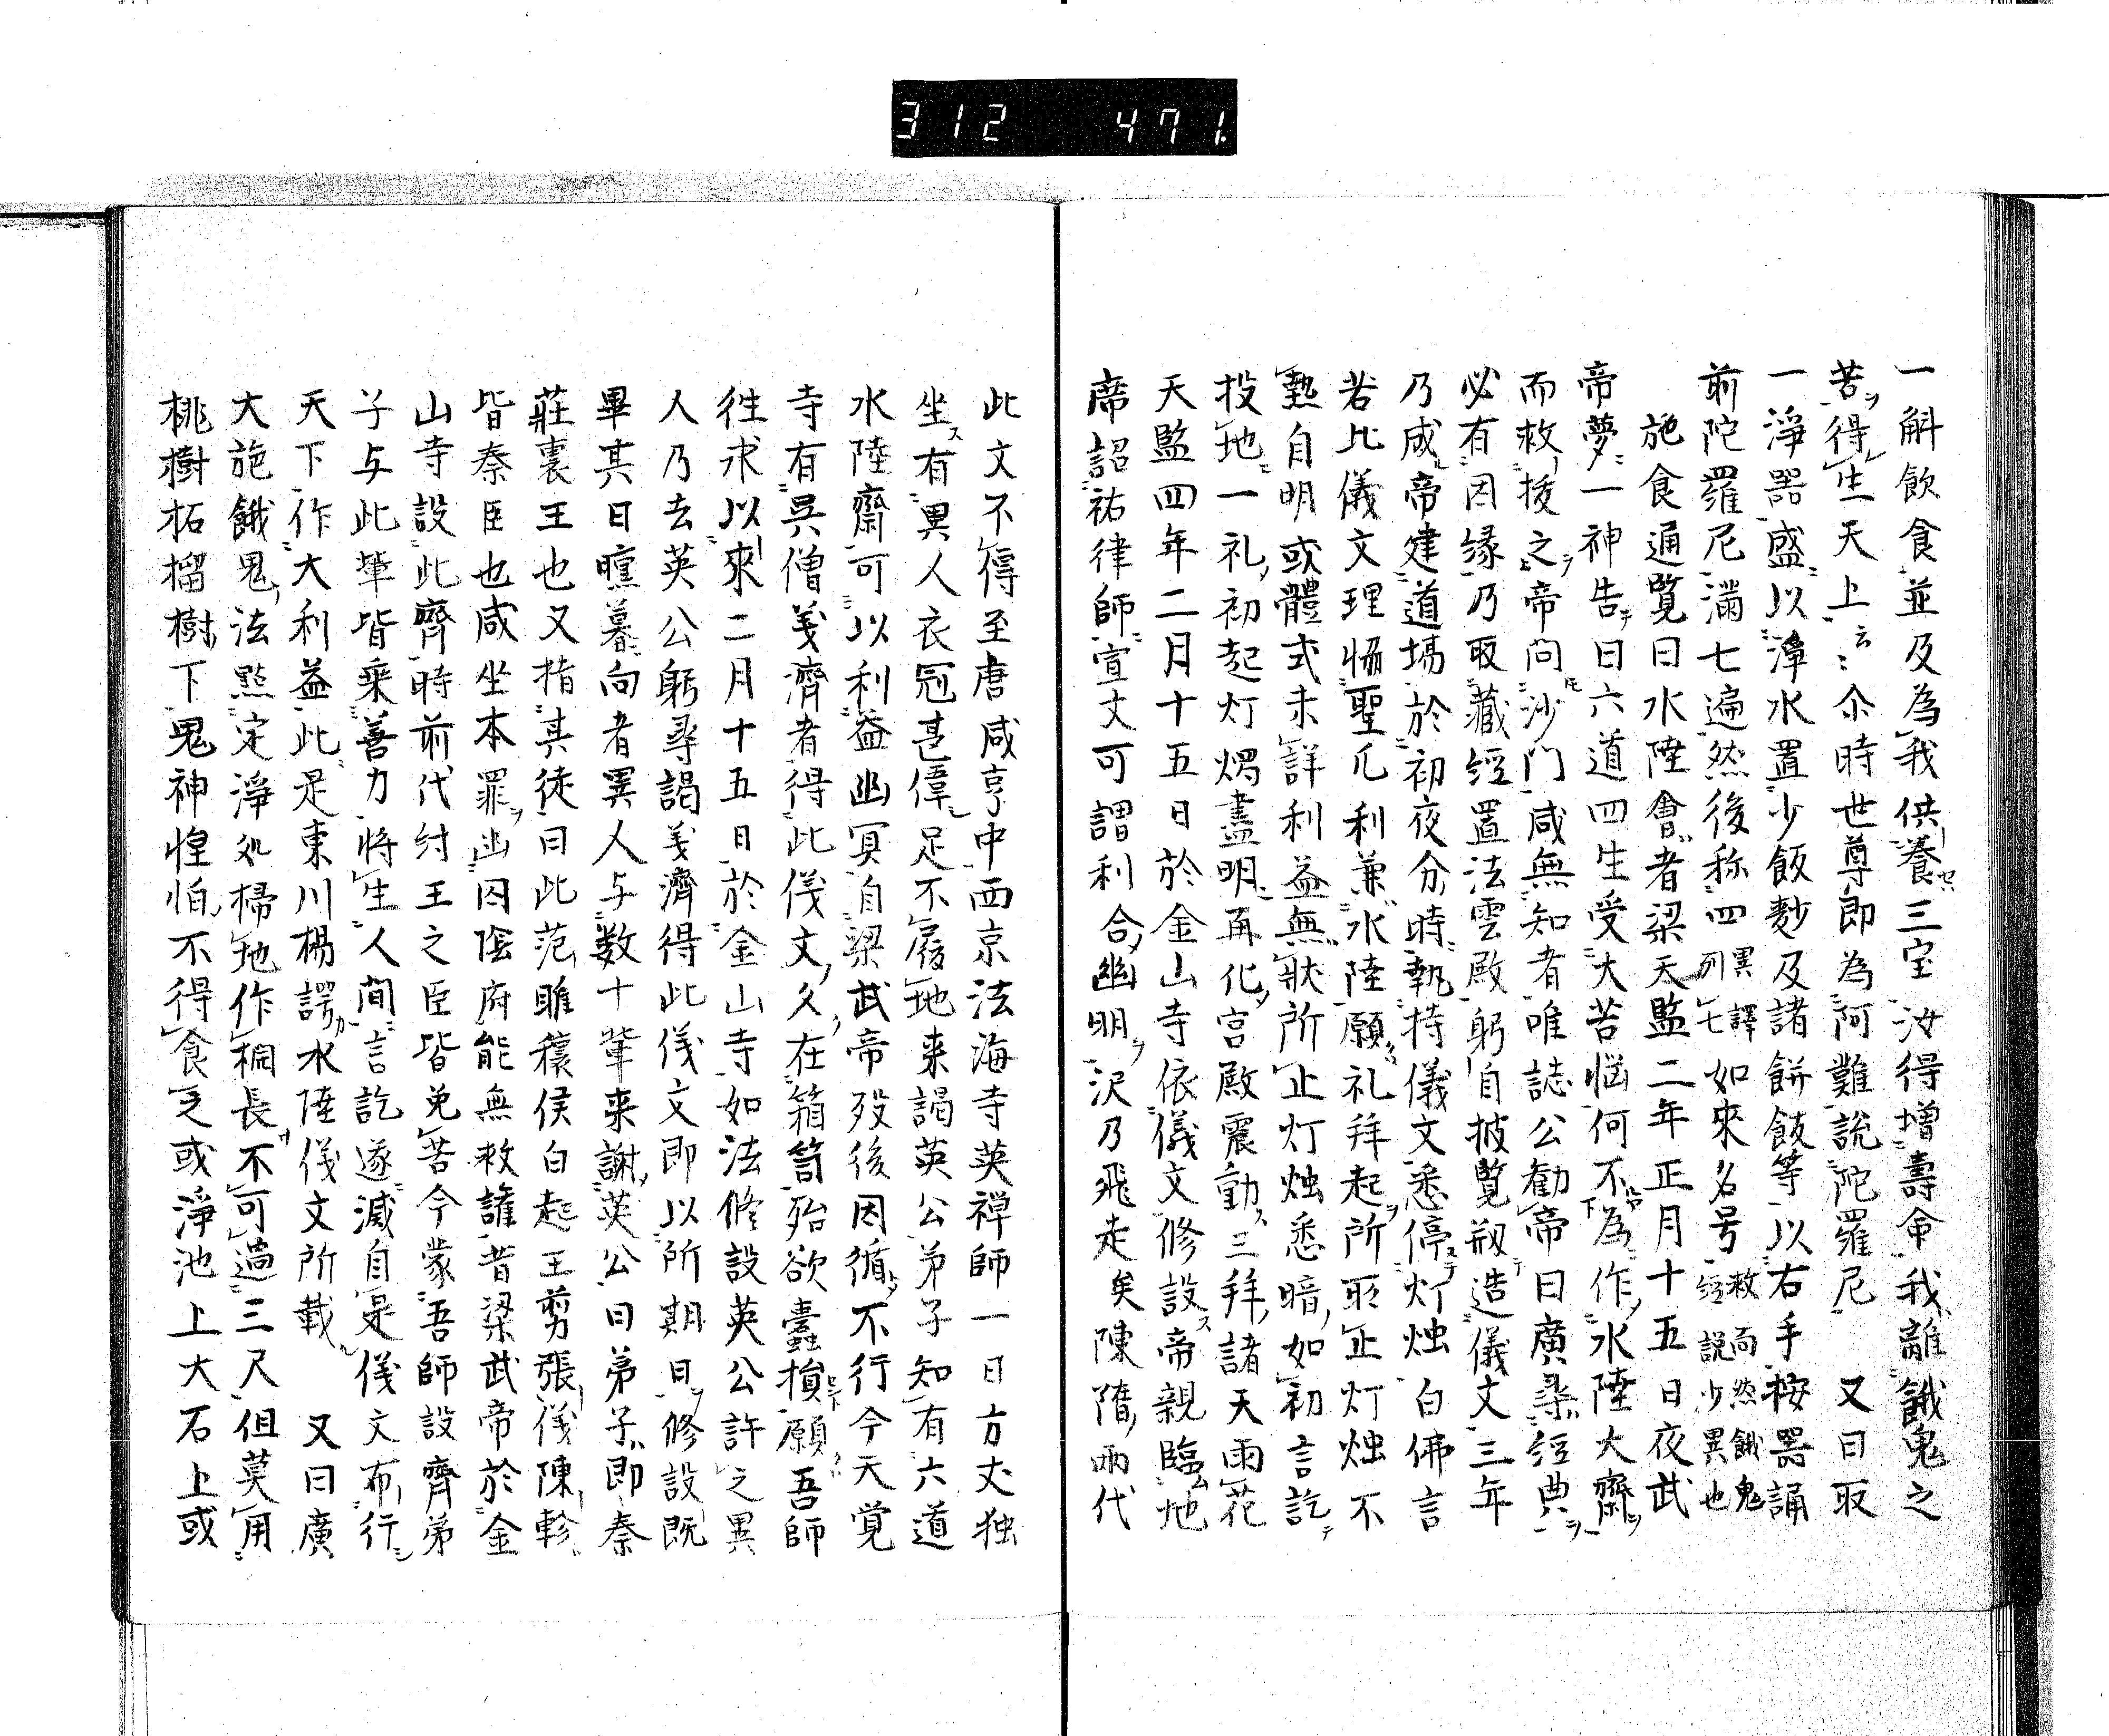 312 471.
一斛飲食並及為我供養三宝汝得增壽命我離餓鬼之
苦得生天上云〻尒時世尊即為阿難說陀羅尼 又曰取
一淨器盛以淨水置少飯麨及諸餅飯等以右手按器誦
前陀羅尼滿七遍然後称四異譯列七如來名号救面然餓鬼經說少異也
施食通覧曰水陸會者梁天監二年正月十五日夜武
帝夢一神告曰六道四生受大苦惱何不為作水陸大齋
而救拔之帝問沙门咸無知者唯誌公勸帝曰廣尋經典
必有因縁乃取藏經置法雲殿躬自披覧剏造儀文三年
乃成帝建道場於初夜分時執持儀文悉停灯烛白佛言
若比儀文理恊聖凡利兼水陸願礼拜起所取止灯烛不
熱自明或體式未詳利益無狀所止灯烛悉暗如初言訖
投地一礼初起灯燭盡明再化宮殿震動三拜諸天雨花
天監四年二月十五日於金山寺依儀文修設帝親臨地
席詔祐律師宣文可謂利合幽明沢乃飛走矣陳隋兩代
此文不得至唐咸亨中西京法海寺英禅師一日方丈独
坐有異人衣冠甚偉足不履地来謁英公弟子知有六道
水陸齋可以利益幽冥自梁武帝歿後因循不行今天覚
寺有吳僧義濟者得此儀文久在箱笥殆欲蠹損願吾師
往求以來二月十五日於金山寺如法修設英公許之異
人乃去英公躬尋謁義濟得此儀文即以所期日修設既
畢其日曛暮向者異人与数十輩来謝英公曰弟子即秦
莊襄王也又指其徒曰此范睢穣侯白起王剪張儀陳軫
皆秦臣也咸坐本罪幽囚陰府能無救護昔梁武帝於金
山寺設此齊時前代紂王之臣皆免苦今蒙吾師設齊弟
子与此輩皆乘善力将生人間言訖遂滅自是儀文布行
天下作大利益此是東川楊諤水陸儀文所載 又曰廣
大施餓鬼法㸃定淨処掃地作榈長不可過三尺但莫用
桃樹柘榴樹下鬼神惶怕不得食之或淨池上大石上或